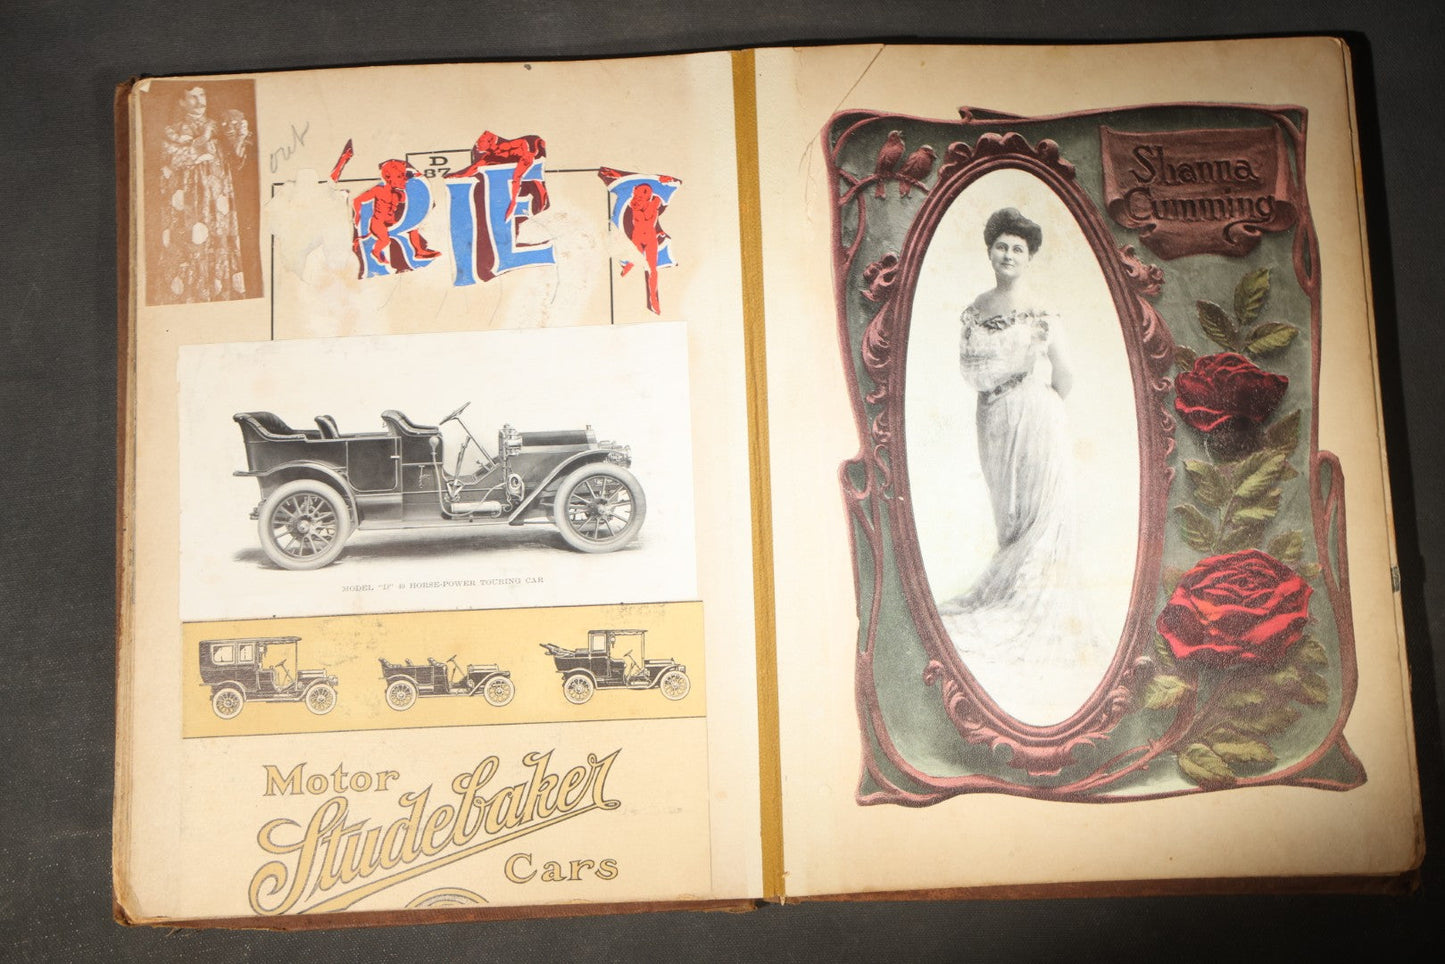 out
D
87
RIE C
MODEL "D" 40 HORSE-POWER TOURING CAR
Motor
Studebaker
Cars
Shanna
Cumming